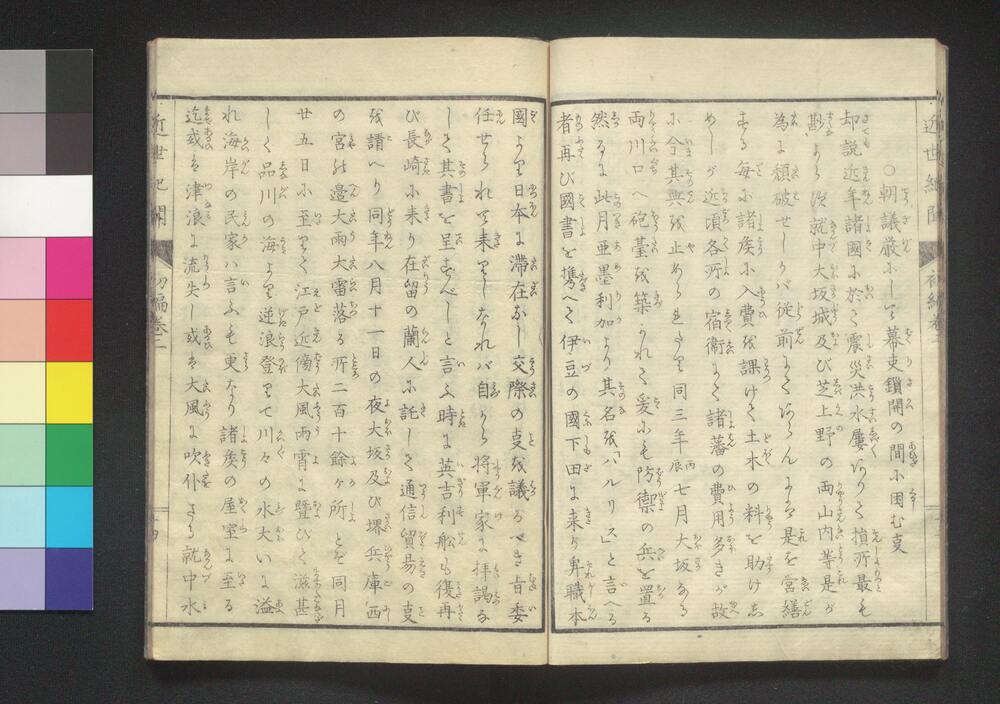 近世紀聞 初編巻三
○朝議厳にして幕吏鎖開の間に困む事
却説近年諸國に於て震災洪水屢ありて損所最も
尠からず就中大坂城及び芝上野の両山内等是が
為に頽破せしかバ従前よりあらんには是を営繕
する毎に諸矦に入費を課けて土木の料を助け志
めしが近頃各所の宿衛にて諸藩の費用多きが故
に令其典を止められたり同三年丙辰七月大坂なる
両川口へ砲臺を築かれて爰にも防禦の兵を置る
然るに此月亜墨利加より其名を「ハルリス」と言へる
者再び國書を携へて伊豆の國下田に来り卑職本
國より日本に滞在なし交際の事を議るべき旨委
任せられて来りしなれバ自から将軍家に拝謁な
して其書を呈すべしと言ふ時に英吉利船も復再
び長崎に来り在留の蘭人に託して通信貿易の事
を請へり同年八月十一日の夜大坂及び堺兵庫西
の宮の邉大雨大雷落る所二百十餘ヶ所とぞ同月
廿五日に至りて江戸近傍大風雨宵に暨びて滋甚
しく品川の海より逆浪登りて川々の水大いに溢
れ海岸の民家ハ言ふも更なり諸矦の屋室に至る
迄或は津浪に流失し或は大風に吹仆さる就中水
近世紀聞 初編巻三